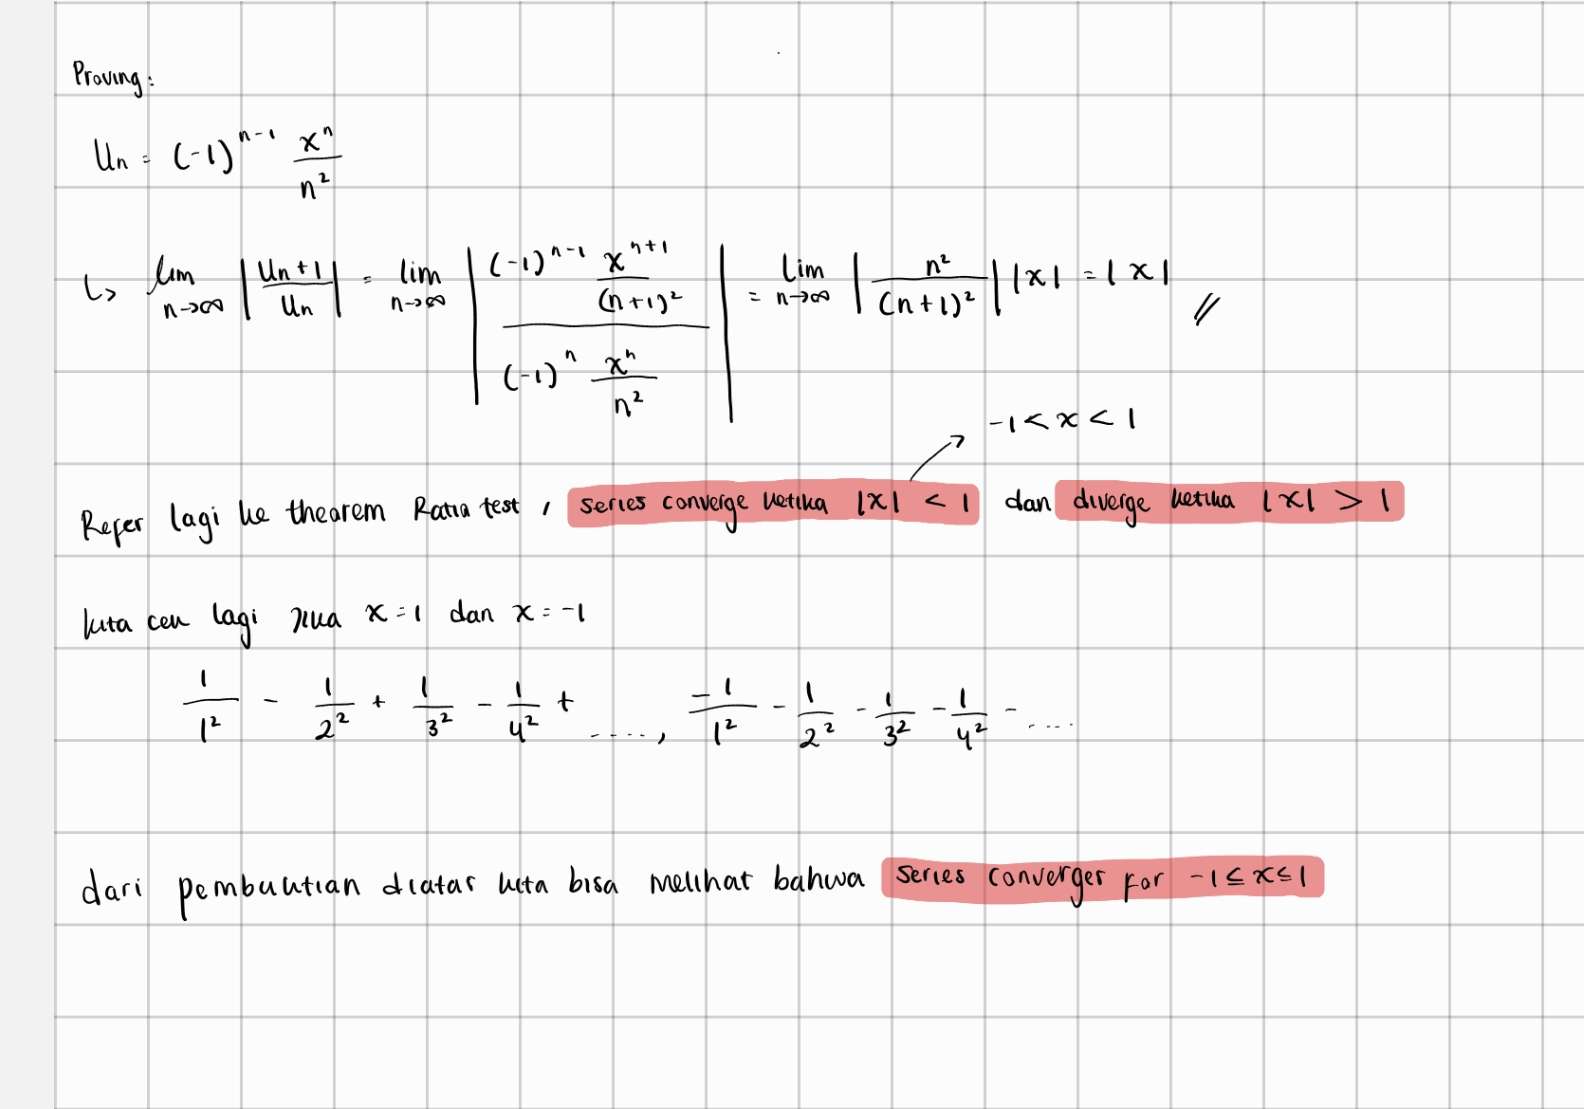 Proving:
Un = (-1)^(n-1) x^n / n^2
↳ lim n→∞ | Un+1 / Un | = lim n→∞ | ((-1)^(n-1) x^(n+1) / (n+1)^2) / ((-1)^n x^n / n^2) | = lim n→∞ | n^2 / (n+1)^2 | |x| = |x| //
-1 < x < 1
Refer lagi ke theorem Ratio test, series converge ketika |x| < 1 dan diverge ketika |x| > 1
kita cek lagi jika x = 1 dan x = -1
1/1^2 - 1/2^2 + 1/3^2 - 1/4^2 + ....., -1/1^2 - 1/2^2 - 1/3^2 - 1/4^2 - ....
dari pembuktian diatas kita bisa melihat bahwa series converges for -1 ≤ x ≤ 1